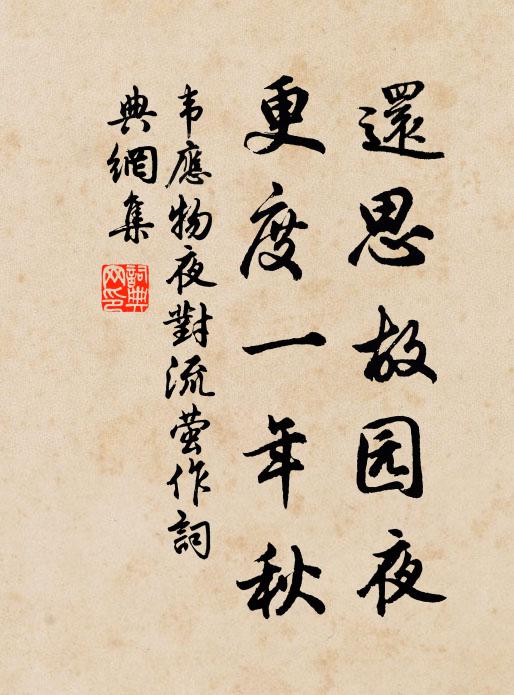 還思故园夜
更度一年秋
韦應物夜對流萤作詞
典網集
詞典网印